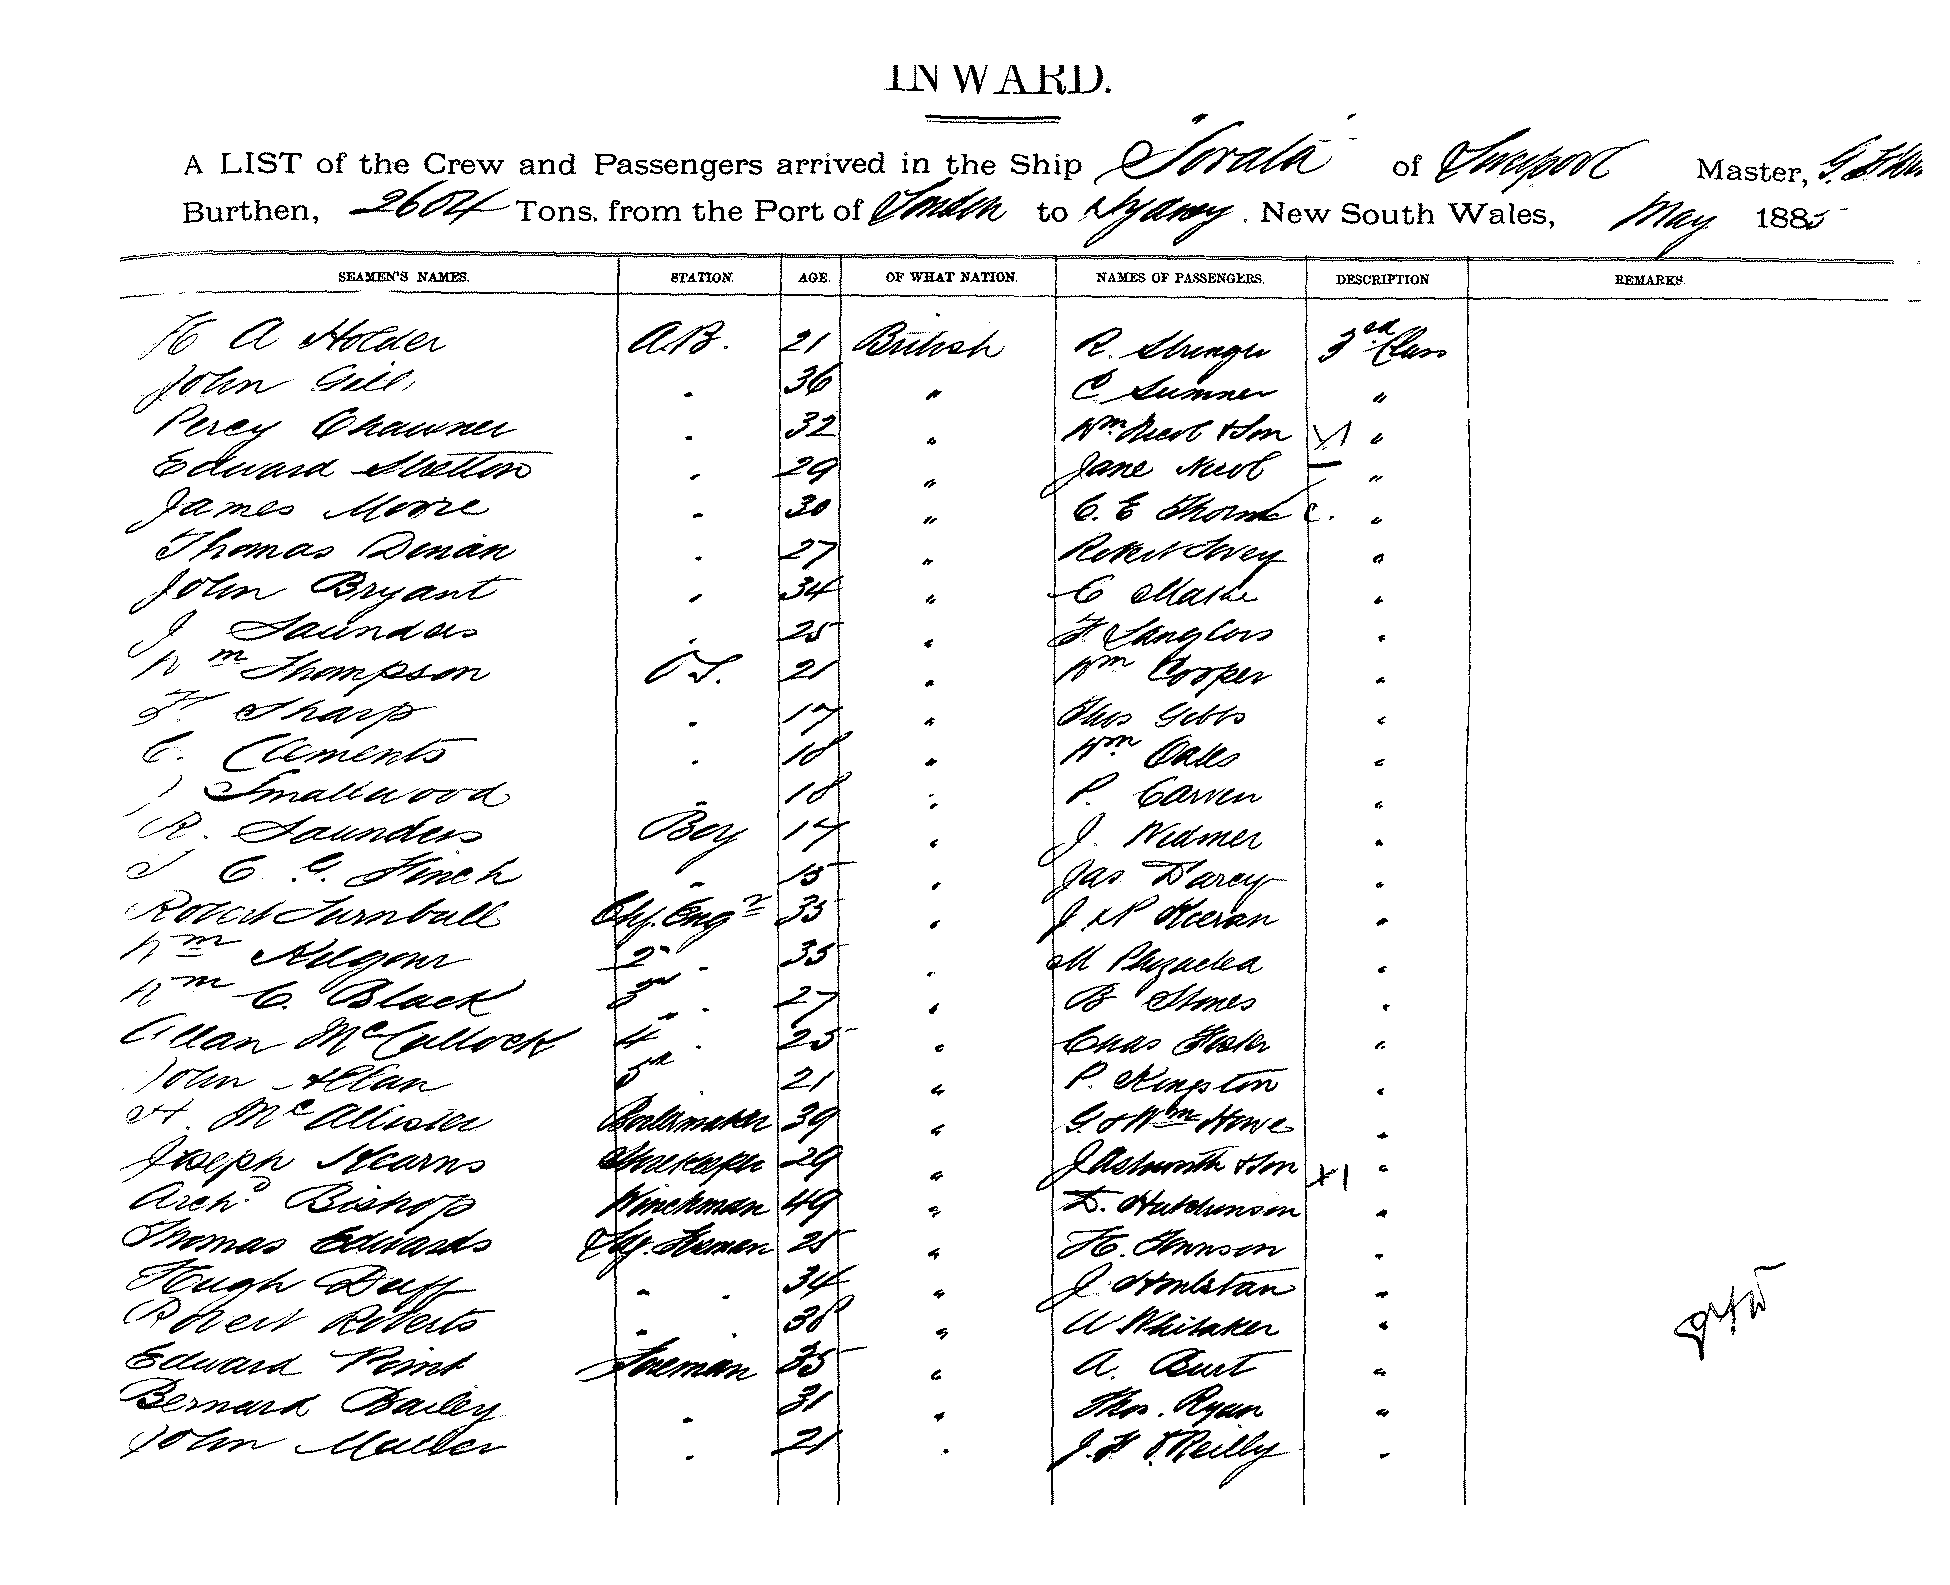 INWARD.
A LIST of the Crew and Passengers arrived in the Ship Sorata of Liverpool Master, G.
Burthen, 2604 Tons. from the Port of London to Sydney. New South Wales, May 1885
SEAMEN'S NAMES. STATION. AGE. OF WHAT NATION. NAMES OF PASSENGERS. DESCRIPTION REMARKS
H A Holder A.B. 21 British R. Stringer 3rd Class
John Gill . 36 " C Sumner "
Percy Chawner . 32 " Wm Nicol & Son "
Edward Stretton . 29 " Jane Nicol "
James Moore . 30 " C. E Thorne "
Thomas Dinan . 27 " Robert Tovey "
John Bryant . 34 " C "
J Saunders . 25 " F. Langlois "
Wm Thompson O.S. 21 " Wm Cooper "
F. Sharp . 17 " Thos Gibbs "
C. Clements . 18 " Wm Oakes "
J Smallwood . 18 " P. Carven "
R. Saunders Boy 17 " J. Widmer "
C. G. Finch . 15 " Jas Darcy "
Robert Turnbull Chf. Engr 35 " J. Keeran "
Wm Kilgour 2nd . 35 " M "
Wm C. Black 3rd . 27 " B Stones "
Allan McCullock 4 . 25 " Chas "
John Allan 5th 21 " P. Kingston "
H. McAllister Boilermaker 39 " G. & Wm Howe "
Joseph Kearns Storekeeper 29 " J Ashworth & Son "
Archd. Bishop Winchman 49 " D. Hutchinson "
Thomas Edwards Ldg. Fireman 25 " H. "
Hugh Duff . . 34 " J Houlstan "
Robert Roberts . . 38 " W Whitaker "
Edward Point Fireman 35 " A. Burt "
Bernard Bailey . 31 " Thos. Ryan "
John Muller . 21 " J. F O'Reilly "